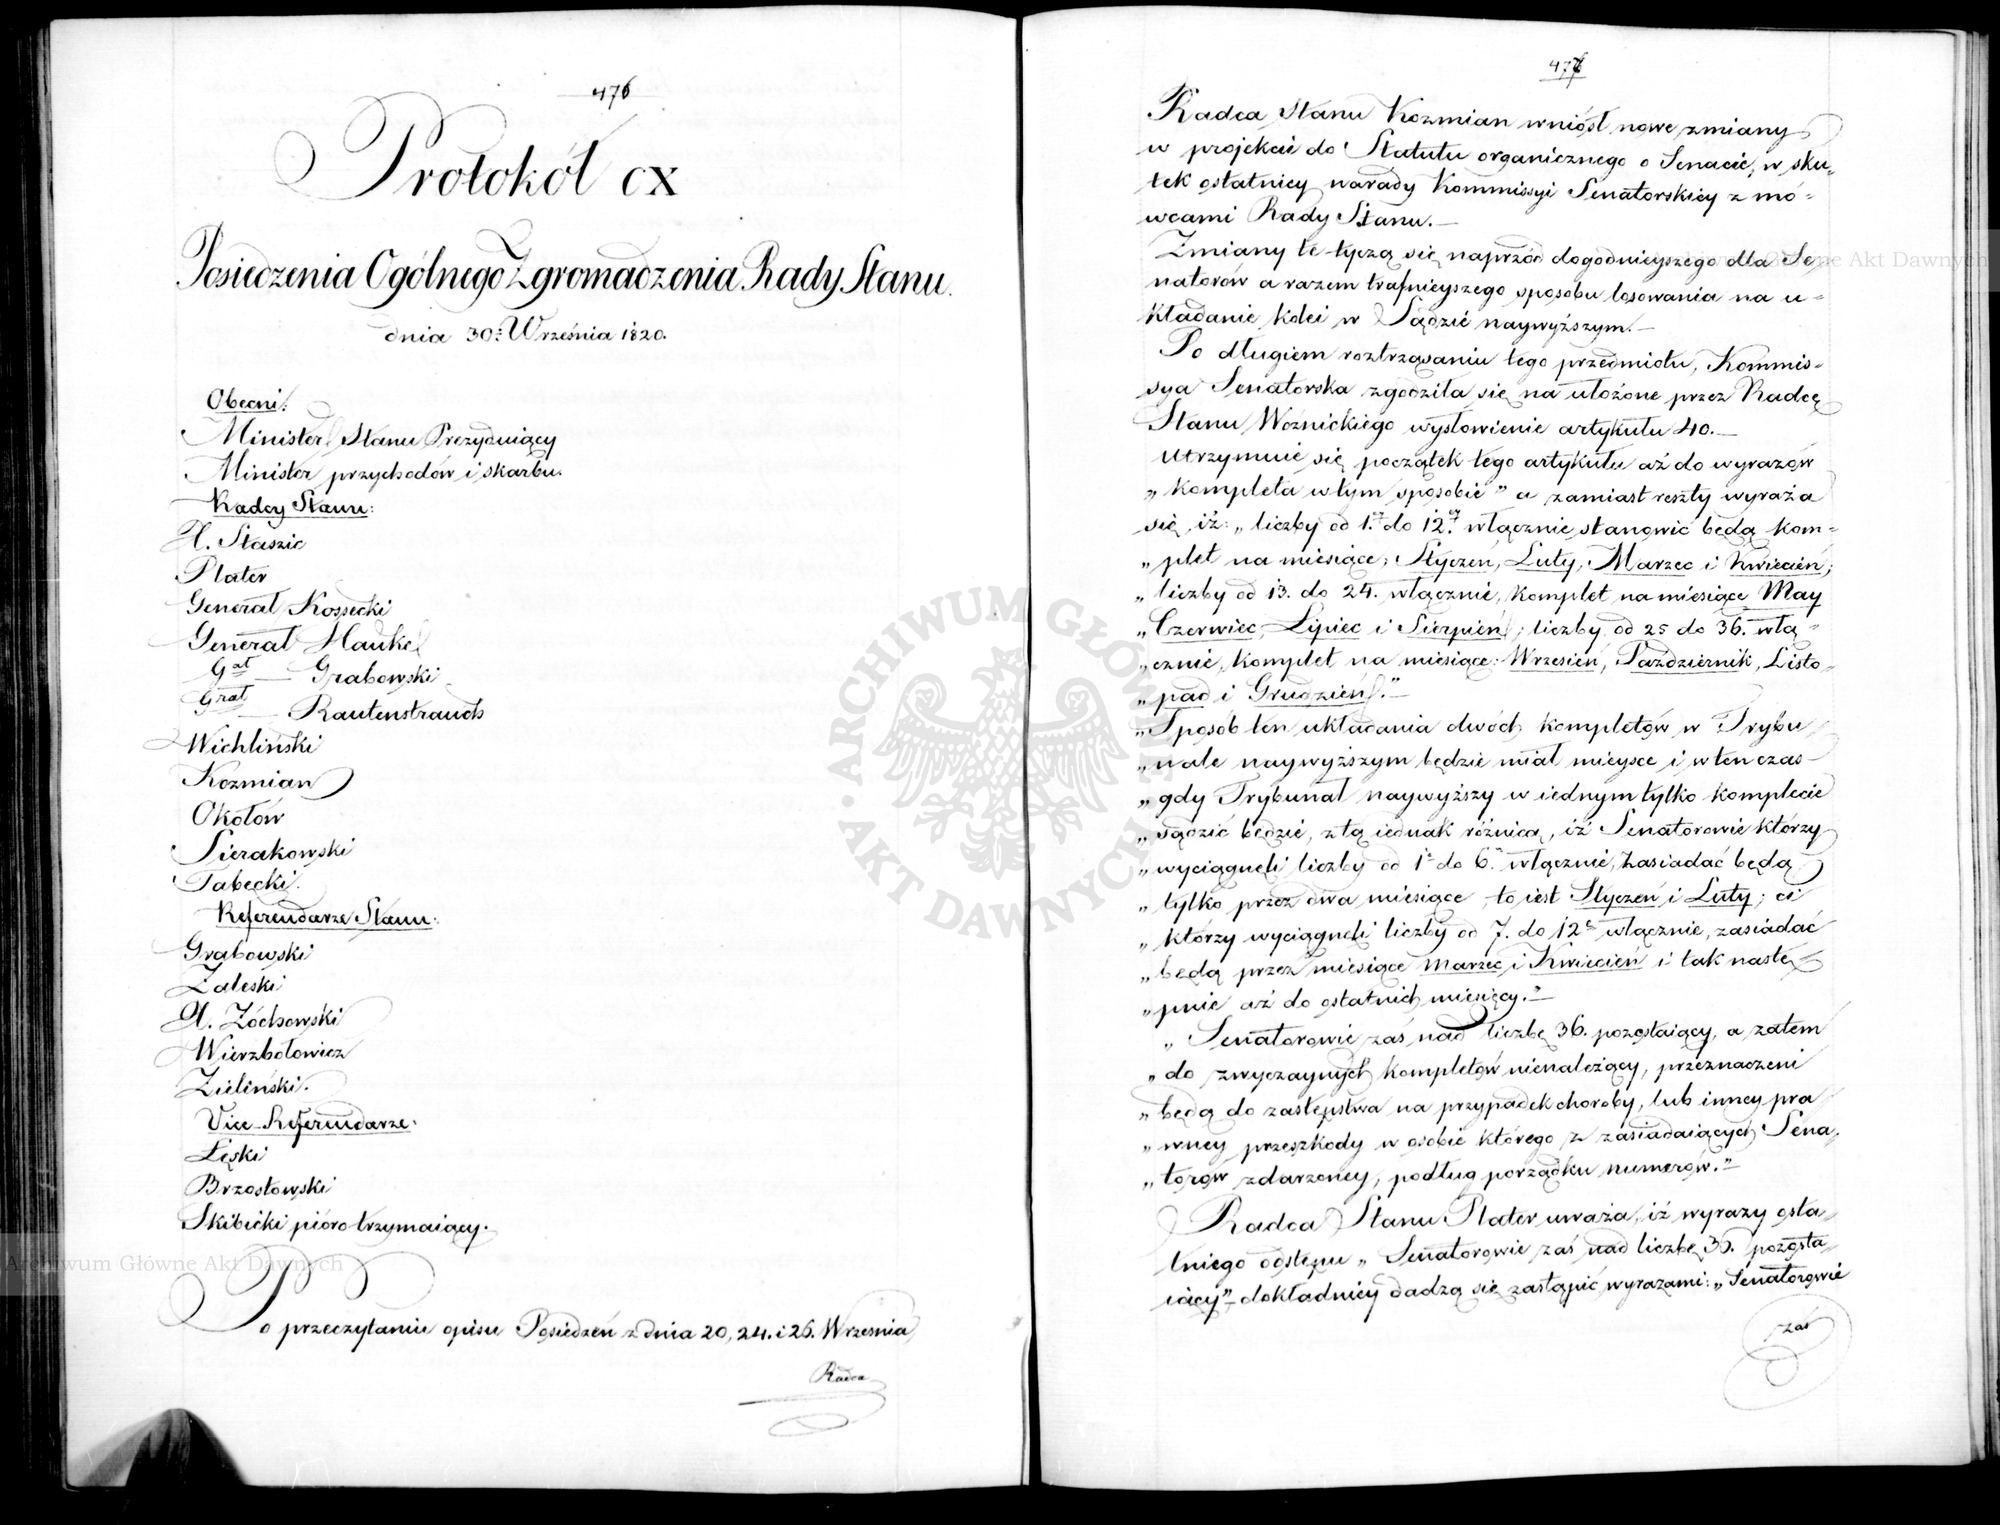 476
Protokół CX
Posiedzenia Ogólnego Zgromadzenia Rady Stanu.
dnia 30. Września 1820.
Obecni:
Minister Stanu Prezyduiący
Minister przychodów i skarbu.
Radcy Stanu:
X. Staszic
Plater
Generał Kossecki
Generał Hauke
Gał — Grabowski
Grał — Rautenstrauch
Wichliński
Kozmian
Okołów
Sierakowski
Tabęcki.
Referendarze Stanu:
Grabowski
Zaleski
X. Żóchowski
Wierzbołowicz
Zieliński.
Vice-Referendarze:
Łęski
Brzostowski
Skibicki pióro trzymaiący.
Po przeczytaniu opisu Posiedzeń z dnia 20, 24. i 26. Września
Radca
477
Radca Stanu Kozmian wniósł nowe zmiany
w projekcie do Statutu organicznego o Senacie, w sku-
tek ostatniey narady Kommissyi Senatorskiey z mó-
wcami Rady Stanu.—
Zmiany te tyczą się naprzód dogodnieyszego dla Se-
natorów a razem trafnieyszego sposobu losowania na u-
kładanie kolei w Sądzie naywyższym.—
Po długiem roztrząsaniu tego przedmiotu, Kommis-
sya Senatorska zgodziła się na ułożone przez Radcę
Stanu Woźnickiego wysłowienie artykułu 40.—
Utrzymuie się początek tego artykułu aż do wyrazów
„kompleta w tym sposobie” a zamiast reszty wyraża
się iż: „liczby od 1.go do 12.go włącznie stanowić będą kom-
„plet na miesiące; Styczeń, Luty, Marzec i Kwiecień;
„liczby od 13. do 24. włącznie, komplet na miesiące May
„Czerwiec, Lipiec i Sierpień; liczby od 25 do 36. włą-
„cznie, komplet na miesiące: Wrzesień, Październik, Listo-
„pad i Grudzień.”—
„Sposób ten układania dwóch kompletów w Trybu-
„nale naywyższym będzie miał mieysce i w ten czas-
„gdy Trybunał naywyższy w iednym tylko komplecie
„sądzić będzie, z tą iednak różnicą, iż Senatorowie którzy
„wyciągnęli liczby od 1 do 6. włącznie, zasiadać będą
„tylko przez dwa miesiące to iest Styczeń i Luty; ci
„którzy wyciągneli liczby od 7. do 12 włącznie, zasiadać
„będą przez miesiące Marzec i Kwiecień i tak nastę-
„pnie aż do ostatnich miesięcy.”—
„Senatorowie zaś nad liczbę 36. pozostaiący, a zatem
„do zwyczaynych kompletów nienależący, przeznaczeni
„będą do zastępstwa na przypadek choroby, lub inney pra-
„wney przeszkody w osobie którego z zasiadaiących Sena-
„torów zdarzoney, podług porządku numerów.”—
Radca Stanu Plater uważa, iż wyrazy osta-
tniego odstępu „Senatorowie zaś nad liczbę 36. pozosta-
iący” dokładniey dadzą się zastąpić wyrazami: „Senatorowie
zaś
ARCHIWUM GŁÓWNE AKT DAWNYCH
Archiwum Główne Akt Dawnych
Archiwum Główne Akt Dawnych